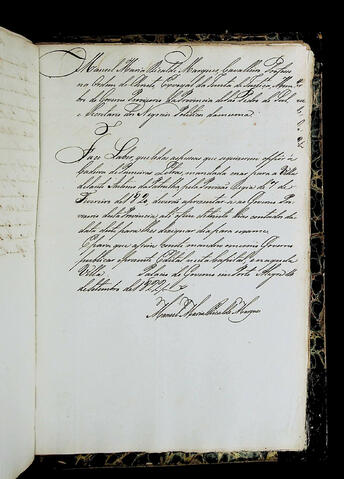 Manoel Maria Ricalde Marques, Cavalleiro Professo
na Ordem de Christo, Vogal da Junta da Justiça, Mem-
bro do Governo Provizorio da Provincia de São Pedro do Sul,
e Secretario dos Negocios Politicos da mesma
Faço Saber, que todas as pessoas que requererem oppôr á
Cadeira de Primeiras Letras, mandada crear para a Villa
de Santo Antonio da Patrulha pela Provizão Regia de 7 de
Fevereiro de 1820, deverá apresentar-se ao Governo Pro-
vizorio desta Provincia, até o fim de trinta dias contados da
data deste para se lhes designar dia para exame.
E para que assim conste mandou o mesmo Governo
publicar o presente Edital nesta Capital e naquella
Villa. Palacio do Governo em Porto Alegre
de Setembro de 1822
Manoel Maria Ricalde Marques